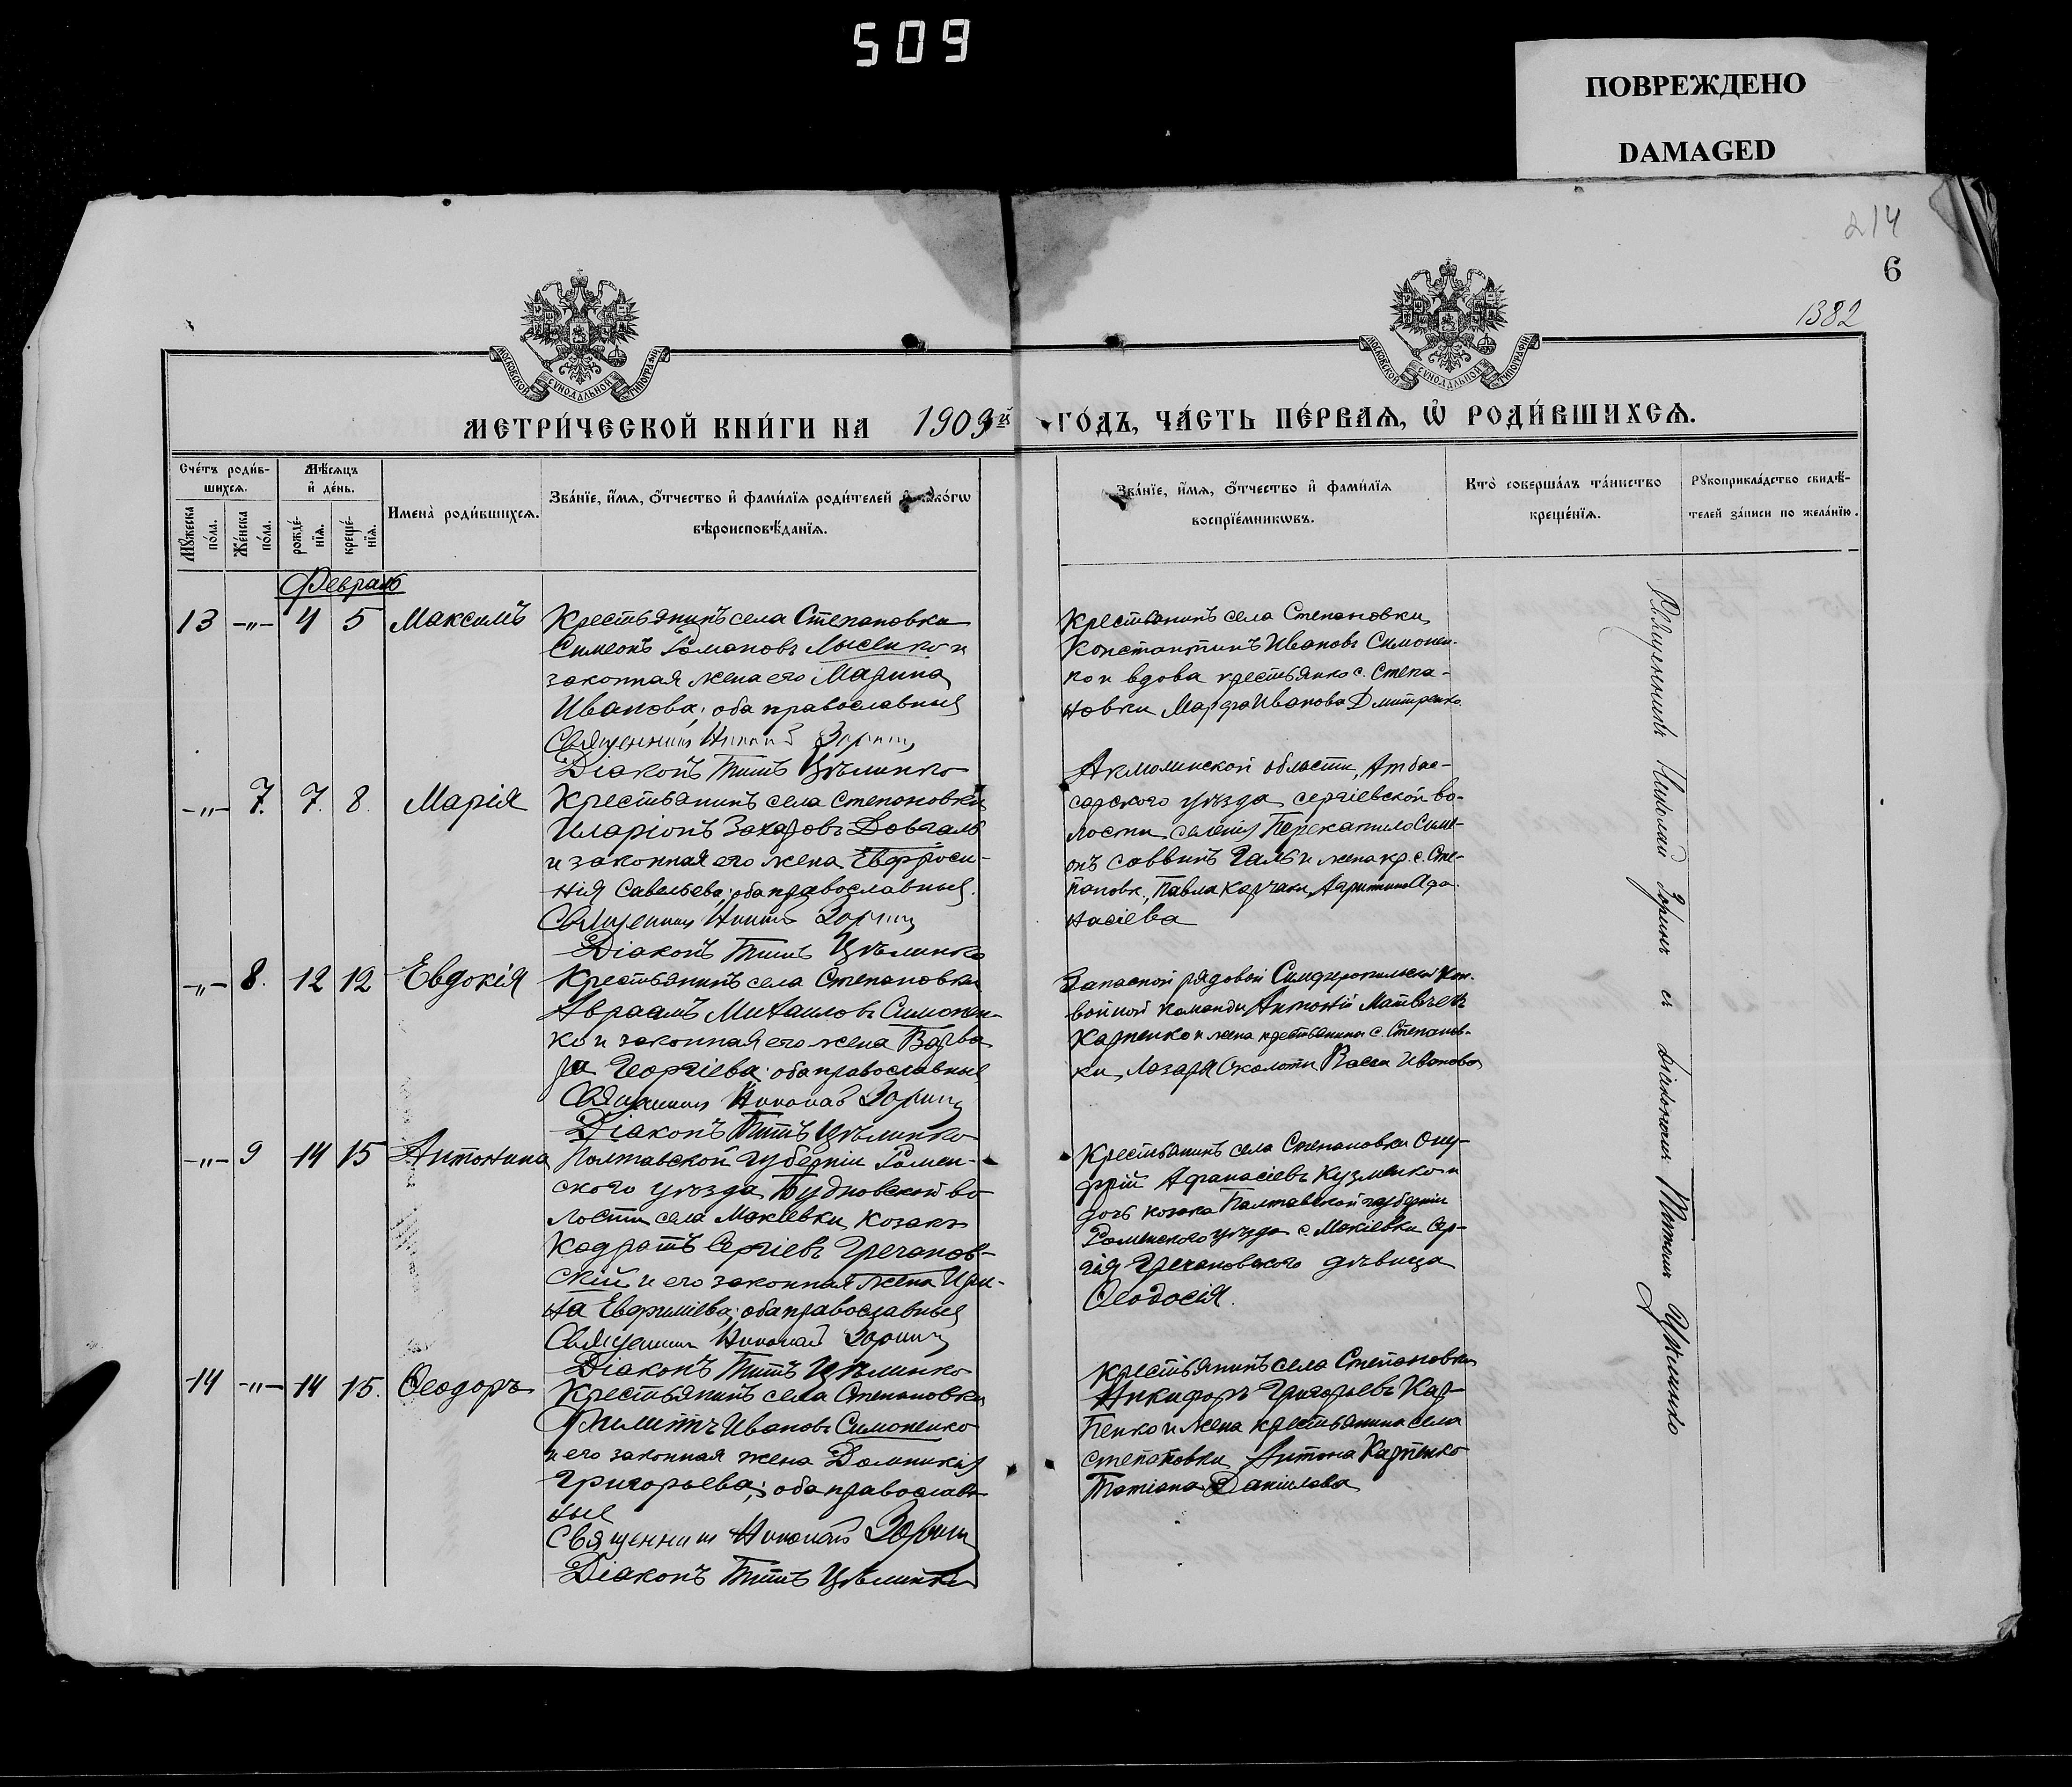 509
ПОВРЕЖДЕНО
DAMAGED
214
6
1382
МОСКОВСКОЙ СѴНОДАЛЬНОЙ ТИПОГРАФІИ
МОСКОВСКОЙ СѴНОДАЛЬНОЙ ТИПОГРАФІИ
МЕТРИ́ЧЕСКОЙ КНИ́ГИ НА 1909й ГО́ДЪ, ЧА́СТЬ ПЕ́РВАѦ, Ѿ РОДИ́ВШИХСѦ.
Сче́тъ роди́в-
шихсѧ.
Мѣ́сѧцъ
и҆ де́нь.
Мꙋ́жеска по́ла.
Же́нска по́ла.
рожде́-нїѧ.
креще́-нїѧ.
Имена̀ роди́вшихсѧ.
Зва́нїе, и҆́мѧ, ѻ҆́тчество и҆ фами́лїѧ роди́телей и҆ како́гѡ
вѣроисповѣ́данїѧ.
Зва́нїе, и҆́мѧ, ѻ҆́тчество и҆ фами́лїѧ
воспрїе́мникѡвъ.
Кто̀ соверша́лъ та́инство
креще́нїѧ.
Рꙋкоприкла́дство свидѣ́-
телей за́писи по жела́нїю.
Февраль
13 -"- 4 5 Максимъ
Крестьянинъ села Степановки
Симеонъ Романовъ Лысенко и
законная жена его Марина
Иванова; оба православные
Священникъ Николай Зоринъ
Діаконъ Титъ Цѣлинко
Крестьянинъ села Степановки
Константинъ Ивановъ Симонен-
ко и вдова крестьянко с. Степа-
новки Марфа Иванова Дмитренко
-"- 7. 7. 8. Марія
Крестьянинъ села Степановки
Иларіонъ Захаровъ Довгаль
и законная его жена Евфроси-
нія Савельева; оба православные.
Священникъ Николай Зоринъ
Діаконъ Титъ Цѣлинко
Акмолинской области, Атбас-
сарского уѣзда сергіевской во-
лости селенія Перекатило Симе-
онъ Саввинъ Галь и жена кр. с. Сте-
пановк., Павла Карчаки, Агрипина Афа-
насіева
-"- 8. 12 12 Евдокія
Крестьянинъ села Степановки
Авраамъ Михаиловъ Симонен-
ко и законная его жена Варва-
ра Георгіева; оба православные
Священникъ Николай Зоринъ
Діаконъ Титъ Цѣлинко
Запасной рядовой Симферопольской кон-
войной команды Антоній Матвѣевъ
Карпенко и жена крестьянина с. Степанов-
ки, Лазаря Сколоты Васса Иванова
-"- 9 14 15 Антонина
Полтавской губерніи Ромен-
ского уѣзда
лости села Макіевки козакъ
Кодратъ Сергіевъ Гречанов-
скій и его законная жена Ири-
на Евфиміева; оба православные
Священникъ Николай Зоринъ
Діаконъ Титъ Цѣлинко
Крестьянинъ села Степановки Ону-
фрій Афанасіевъ Кузменко и
дочь козака Полтавской губерніи
Роменского уѣзда с. Макіевки Сер-
гія Гречановского дѣвица
Ѳеодосія.
14 -"- 14 15. Ѳеодоръ
Крестьянинъ села Степановки
Филиппъ Ивановъ Симоненко
и его законная жена Домникія
Григорьева; оба православ-
ные
Священникъ Николай Зоринъ
Діаконъ Титъ Цѣлинко
Крестьянинъ села Степановки
Никифоръ Григорьевъ Кар-
пенко и жена крестьянина села
Степановки Антона Карпенко
Татіана Даніилова
Священникъ Николай Зоринъ съ діакономъ Титомъ Цѣлинко